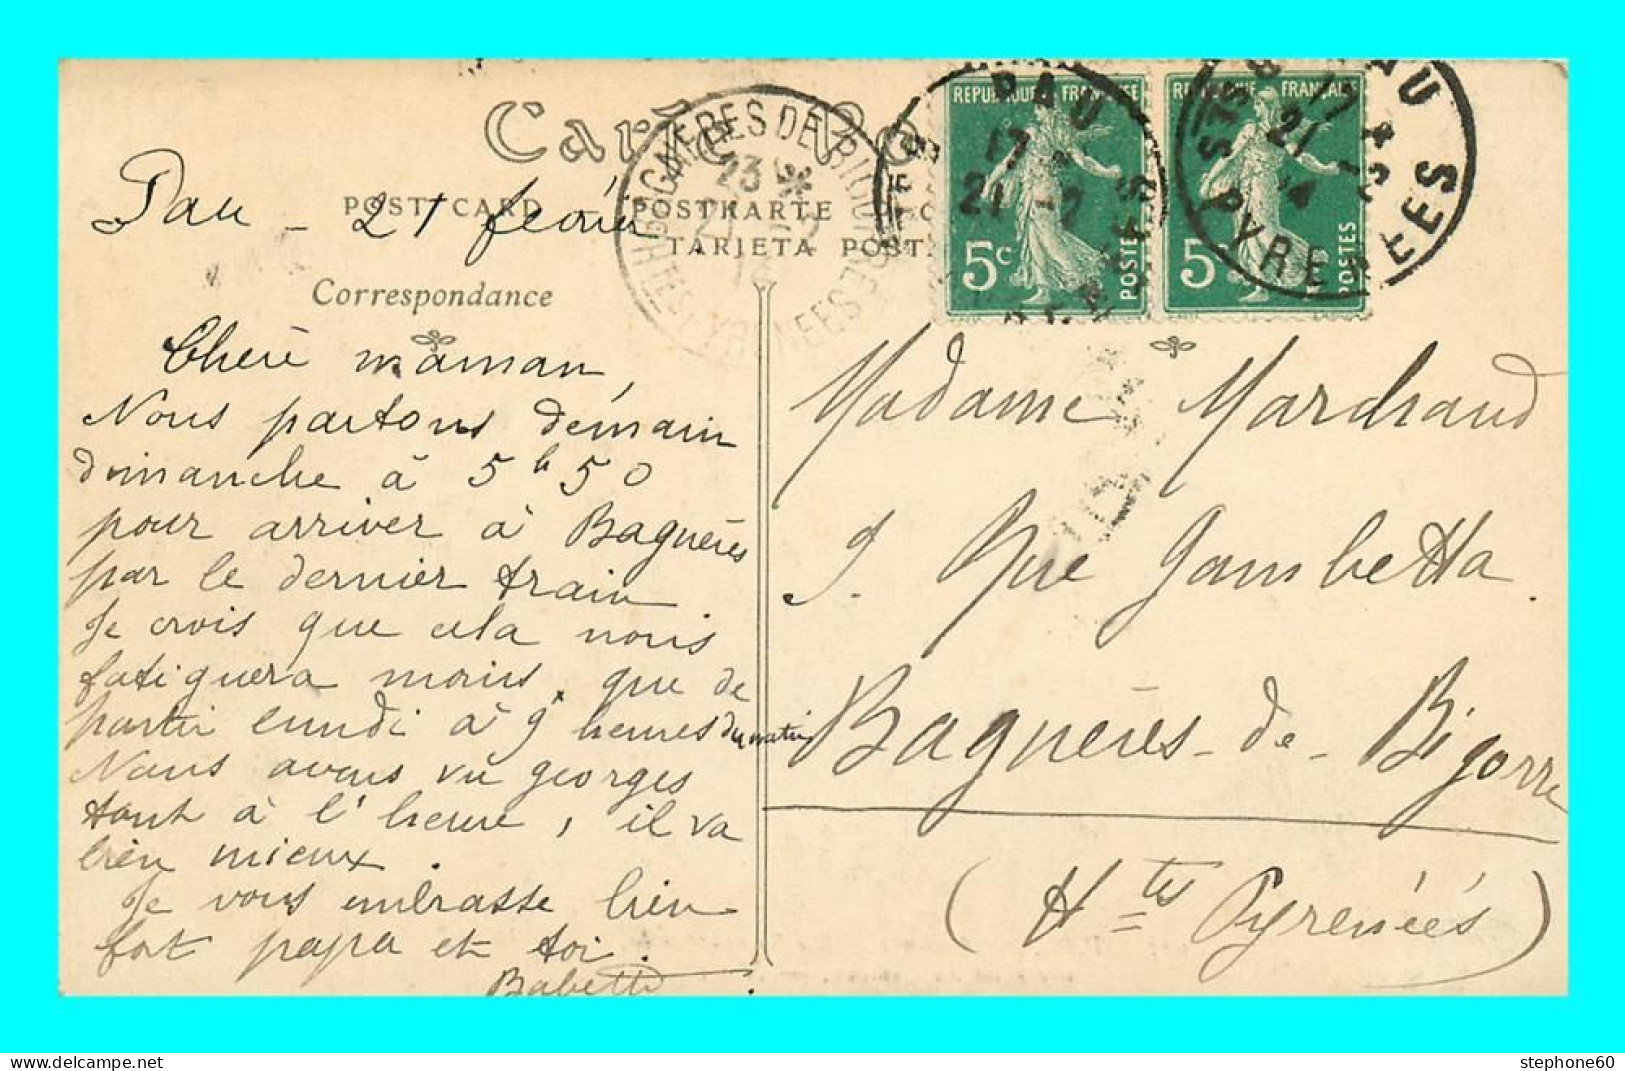 Carte Po
POSTCARD POSTKARTE
TARJETA POST
Correspondance
Pau - 21 février
Chère maman,
Nous partons demain
dimanche à 5h50
pour arriver à Bagnères
par le dernier train
Je crois que cela nous
fatiguera moins, que de
partir lundi à 9 heures du matin
Nous avons vu georges
tout à l'heure, il va
bien mieux.
Je vous embrasse bien
fort papa et toi.
Babette
BAGNERES DE BIGORRE
HTES PYRENEES
23
21
REPUBLIQUE FRANÇAISE
5c POSTES
PAU
17
21 -2
REPUBLIQUE FRANÇAISE
5c POSTES
PAU
17
21 -2
14
BSES PYRENEES
Madame Marchand
9. Rue Gambetta.
Bagnères-de-Bigorre
(Htes Pyrénées)
www.delcampe.net
stephone60